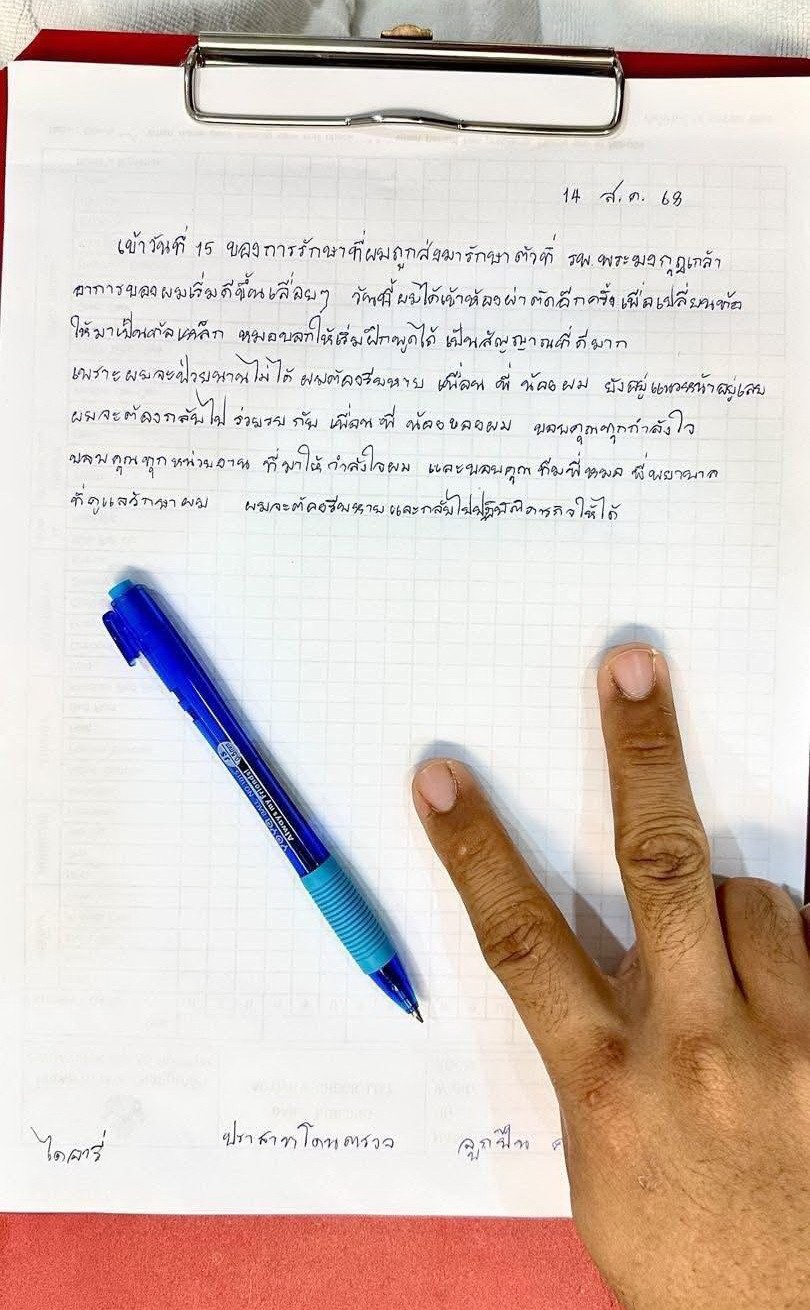 14 ส.ค. 68
เข้าวันที่ 15 ของการรักษาที่ผมถูกส่งมารักษาตัวที่ รพ.พระมงกุฎเกล้า
อาการของผมเริ่มดีขึ้นเรื่อยๆ วันนี้ผมได้เข้าห้องผ่าตัดอีกครั้ง เพื่อเปลี่ยนท่อ
ให้มาเป็นท่อเหล็ก หมอบอกให้เริ่มฝึกพูดได้ เป็นสัญญาณที่ดีมาก
เพราะผมจะป่วยนานไม่ได้ ผมต้องรีบหาย เพื่อน พี่ น้อง ผม ยังอยู่แนวหน้าอยู่เลย
ผมจะต้องกลับไป ร่วมรบ กับ เพื่อน พี่ น้องของผม ขอบคุณทุกกำลังใจ
ขอบคุณทุกหน่วยงาน ที่มาให้กำลังใจผม และขอบคุณ ทีมพี่หมอ พี่พยาบาล
ที่ดูแลรักษาผม ผมจะต้องรีบหายและกลับไปปฏิบัติภารกิจให้ได้
Always my Friends!
ไดอารี่ ปราสาทโดนตรวล ลูกปืน